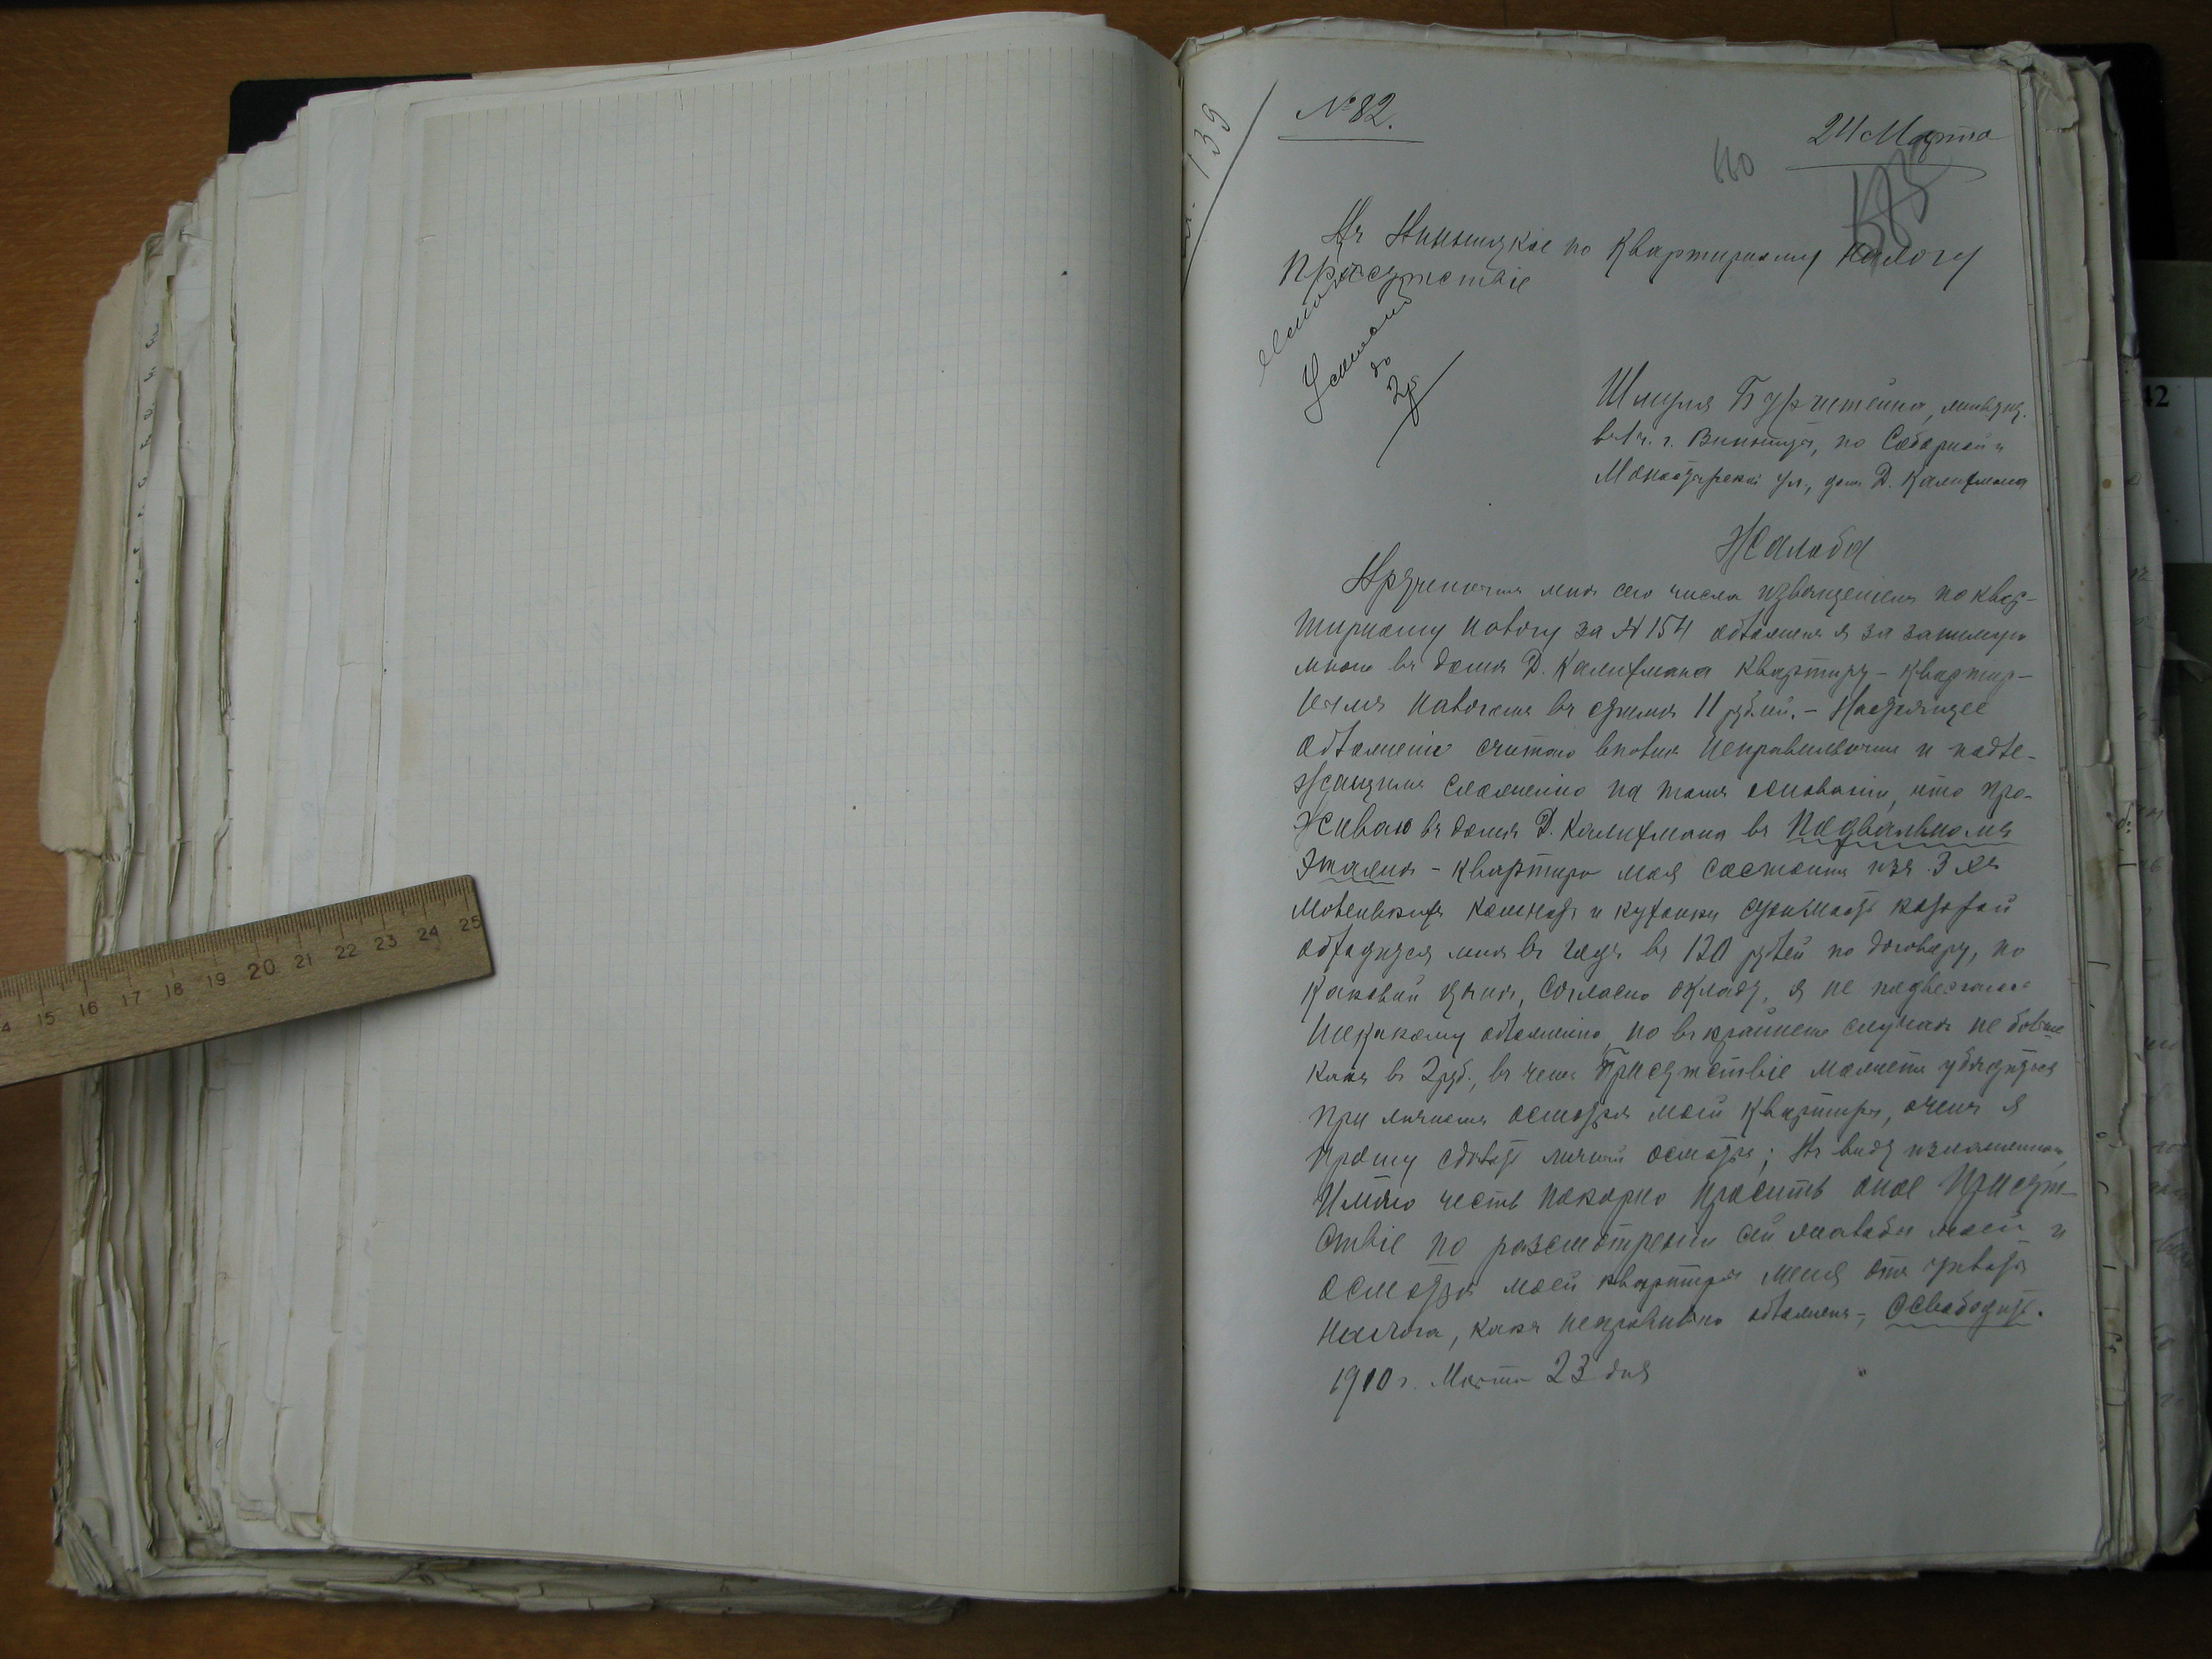 № 82.
24 Марта
139
Въ Винницкое по Квартирному Налогу
Присутствіе
Уменьшить
до
2 р
Шмуля Бурштейна, живущ.
въ 1 ч. г. Винницы, по Соборной и
Монастырской ул., домъ Д. Калихмана
Жалоба
Врученнымъ мнѣ сего числа извѣщеніемъ по квар-
тирному налогу за № 154 обложенъ я за занимаемую
мною въ домѣ Д. Калихмана квартиру – квартир-
нымъ налогомъ въ суммѣ 11 рублей. – Настоящее
обложеніе считаю вполнѣ неправильнымъ и подле-
жащимъ сложенію на томъ основаніи, что про-
живаю въ домѣ Д. Калихмана въ подвальномъ
этажѣ – квартира моя состоитъ изъ 3хъ
маленькихъ комнатъ и кухоньки стоимость которой
обходится мнѣ въ годъ въ 120 рублей по договору, по
каковой цѣнѣ, согласно окладу, я не подвергаюсь
никакому обложенію, но въ крайнемъ случаѣ не больше
какъ въ 2 руб., въ чемъ Присутствіе можетъ убѣдиться
при личномъ осмотрѣ моей квартиры, о чемъ я
прошу сдѣлать личный осмотръ; Въ виду изложеннаго
имѣю честь покорно просить оное Присут-
ствіе по разсмотреніи сей жалобы моей и
осмотрѣ моей квартиры меня отъ уплаты
налога, какъ неправильно обложенъ, – освободить.
1910 г. Марта 23 дня
42
14 15 16 17 18 19 20 21 22 23 24 25